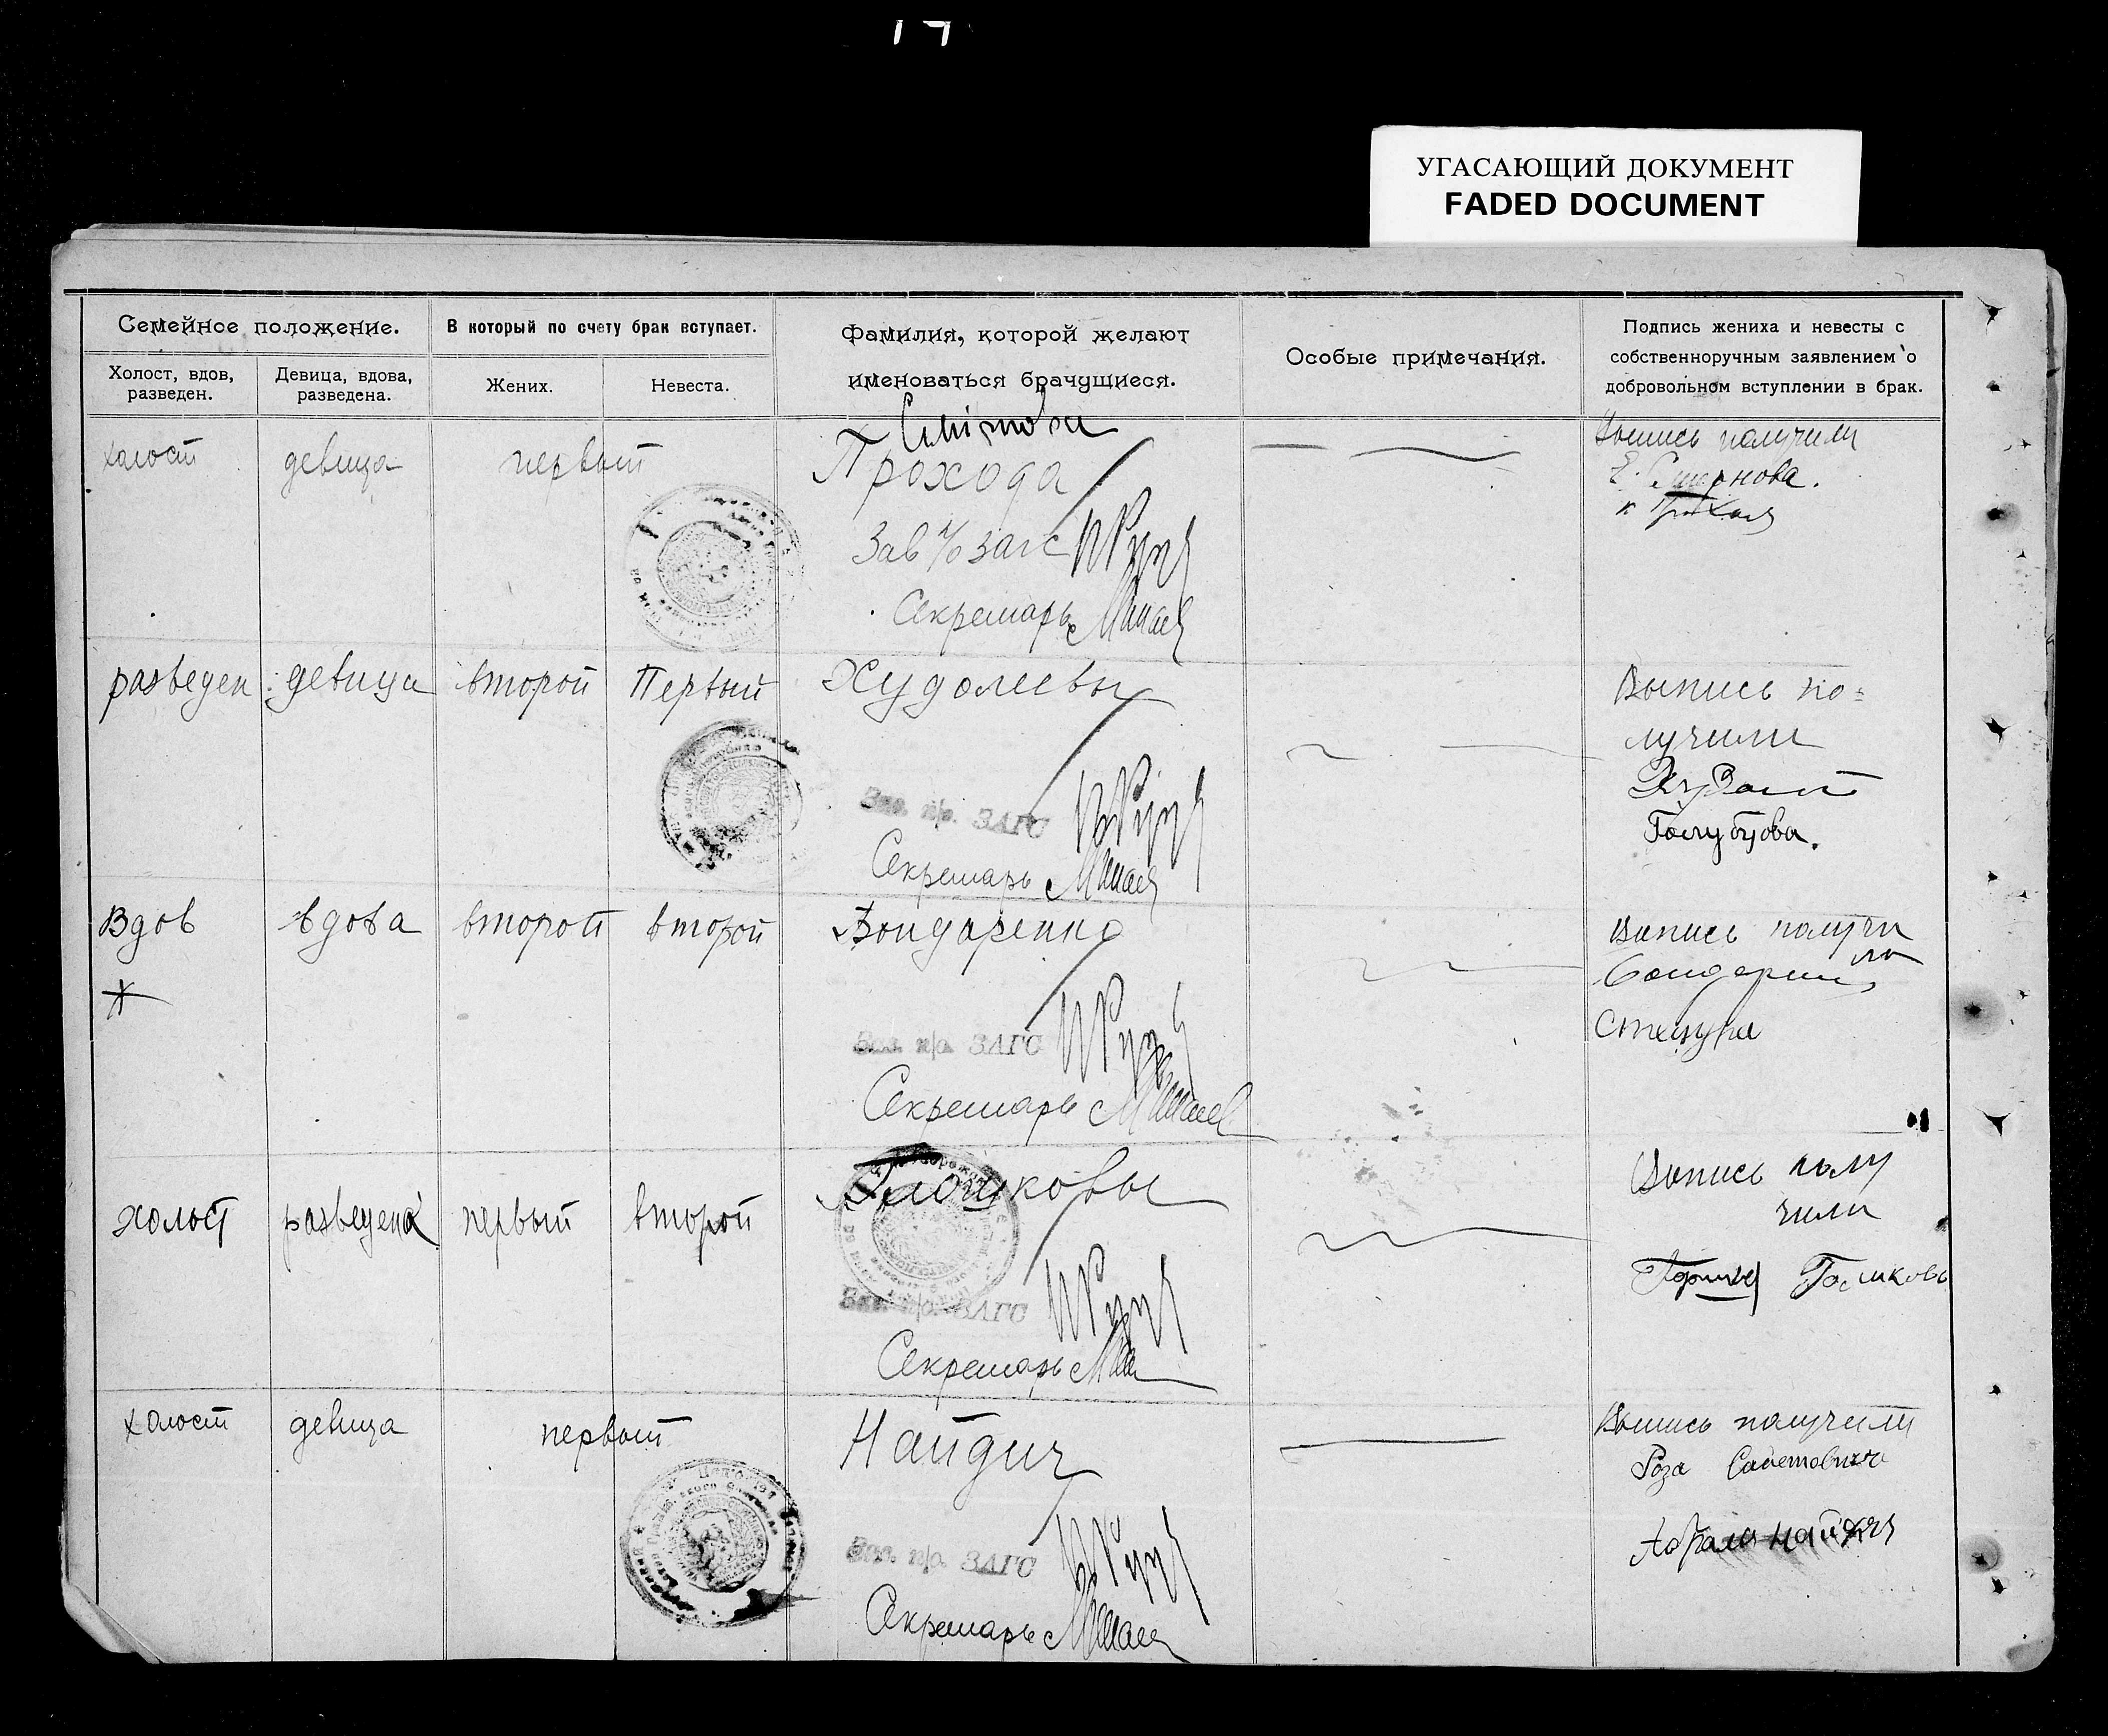 УГАСАЮЩИЙ ДОКУМЕНТ
FADED DOCUMENT
Семейное положение.
В который по счету брак вступает.
Фамилия, которой желают
именоваться брачущиеся.
Особые примечания.
Подпись жениха и невесты с
собственноручным заявлением о
добровольном вступлении в брак.
Холост, вдов,
разведен.
Девица, вдова,
разведена.
Жених.
Невеста.
холост
девица
первый
Смирнова
Прохода
Зав п/о загс
Секретарь
Выпись получили
Е. Смирнова.
разведен
девица
второй
Первый
Худолеевы
Зав. п/о. ЗАГС
Секретарь
Выпись по-
лучили
Голубцова.
Вдов
вдова
второй
второй
Бондаренко
Зав. п/о. ЗАГС
Секретарь
Выпись получи
ли
холост
разведена
первый
второй
Зав. п/о. ЗАГС
Секретарь
Выпись полу
чили
холост
девица
первый
Найдич
Зав. п/о. ЗАГС
Секретарь
Выпись получили
Роза
Абрам Найдич